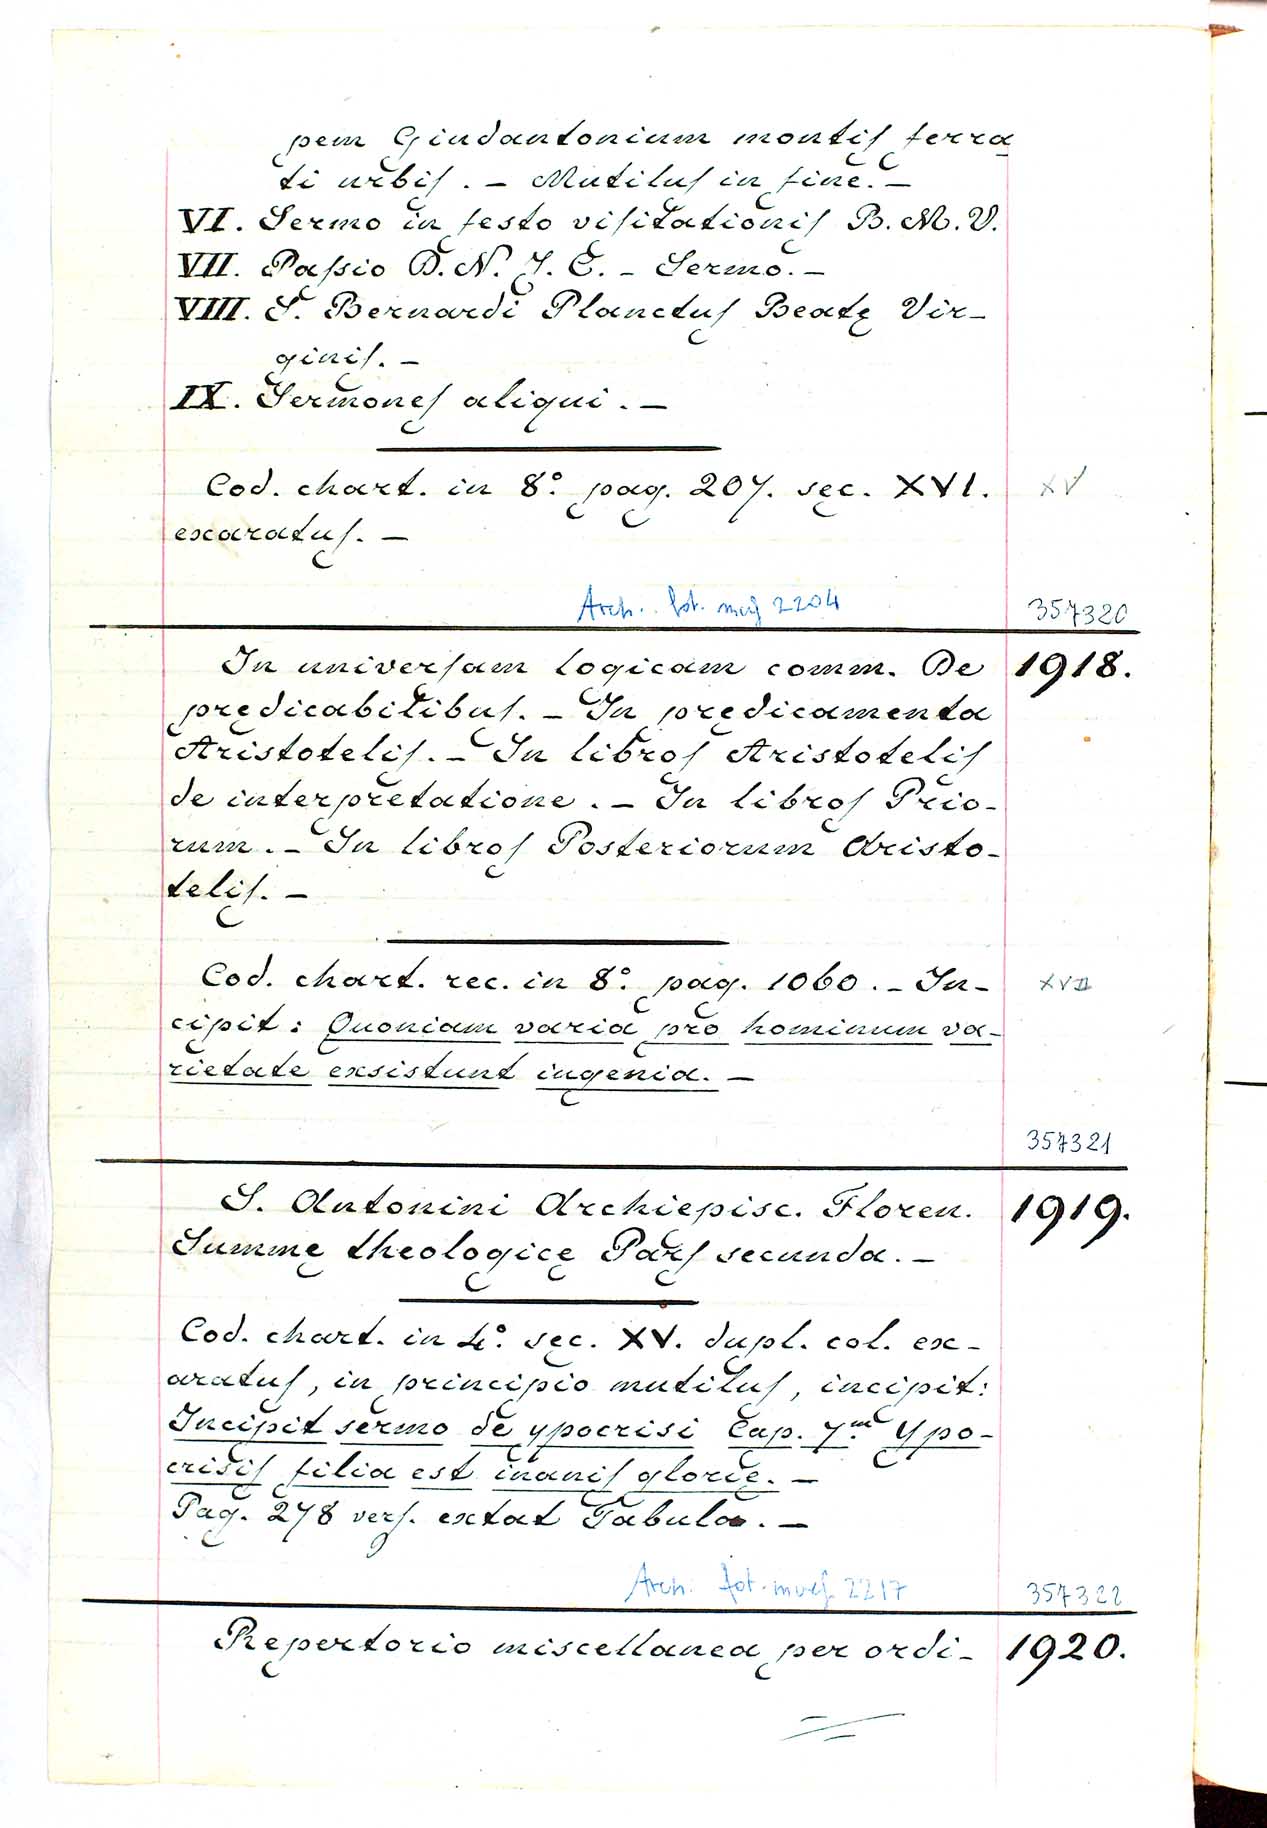 pem Guidantonium montis ferra
ti urbis. – Mutilus in fine. –
VI. Sermo in festo visitationis B. M. V.
VII. Passio D. N. J. C. – Sermo. –
VIII. S. Bernardi Planctus Beatę Vir-
ginis. –
IX. Sermones aliqui. –
Cod. chart. in 8.° pag. 207. sęc. XVI. XV
exaratus. –
Arch. fot. mss 2204 357320
In universam logicam comm. De 1918.
prędicabilibus. – In prędicamenta
Aristotelis. – In libros Aristotelis
de interpretatione. – In libros Prio-
rum. – In libros Posteriorum Aristo-
telis. –
Cod. chart. rec. in 8.° pag. 1060. – In- XVII
cipit: Quoniam varia pro hominum va-
rietate exsistunt ingenia. –
357321
S. Antonini Archiepisc. Floren. 1919.
Summę theologicę Pars secunda. –
Cod. chart. in 4.° sęc. XV. dupl. col. ex-
aratus, in principio mutilus, incipit:
Incipit sermo de ypocrisi Cap. 7.m Ypo-
crisis filia est inanis glorię. –
Pag. 278 vers. extat Tabula. –
Arch. fot. mss. 2217 357322
Repertorio miscellanea per ordi- 1920.